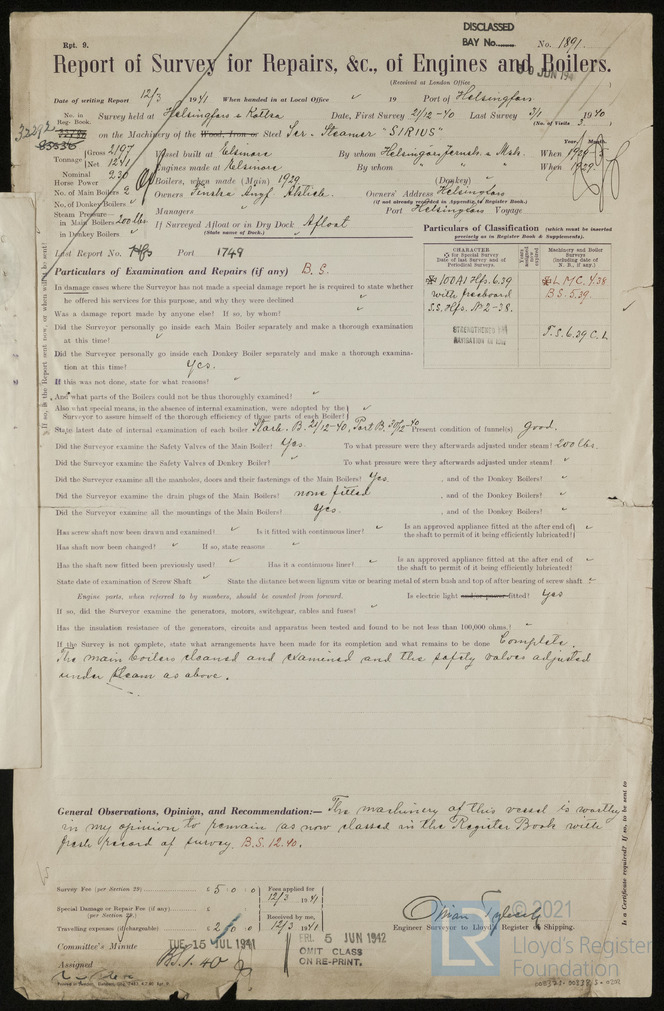 DISCLASSED
BAY No.
Rpt. 9.
No. 1891
Report of Survey for Repairs, &c., of Engines and Boilers.
(Received at London Office
Date of writing Report 12/3 1941 When handed in at Local Office 19 Port of Helsingfors
No. in Reg. Book. Survey held at Helsingfors & Kotka Date, First Survey 21/12-40 Last Survey 3/1 1940
(No. of Visits 3
on the Machinery of the Wood, Iron or Steel Scr. Steamer "SIRIUS"
Tonnage Gross 2197 Net 1241
Vessel built at Elsinore By whom Helsingörs Jernsk. & Msk. When 1929-3
Engines made at Elsinore By whom " " When 1929
Nominal Horse Power 230
Boilers, when made (Main) 1929 (Donkey)
No. of Main Boilers 2 Owners Finska Ångf. Aktieb. Owners' Address Helsingfors
(if not already recorded in Appendix to Register Book.)
No. of Donkey Boilers
Managers Port Helsingfors Voyage
Steam Pressure in Main Boilers 200 lbs
in Donkey Boilers
If Surveyed Afloat or in Dry Dock Afloat
(State name of Dock.)
Particulars of Classification (which must be inserted
precisely as in Register Book & Supplements).
Last Report No. Port 1749
CHARACTER
for Special Survey
Date of last Survey and of
Periodical Surveys.
Years assigned or expired
Machinery and Boiler
Surveys
(including date of
N. B., if any).
100A1 Hfs. 6.39
with freeboard
S.S. Hfs. No 2-38.
LMC. 4.38
BS. 5.39.
T.S. 6.39 C.L.
Particulars of Examination and Repairs (if any) B.S.
In damage cases where the Surveyor has not made a special damage report he is required to state whether
he offered his services for this purpose, and why they were declined
Was a damage report made by anyone else? If so, by whom?
Did the Surveyor personally go inside each Main Boiler separately and make a thorough examination
at this time?
Did the Surveyor personally go inside each Donkey Boiler separately and make a thorough examina-
tion at this time? Yes.
If this was not done, state for what reasons?
And what parts of the Boilers could not be thus thoroughly examined?
Also what special means, in the absence of internal examination, were adopted by the
Surveyor to assure himself of the thorough efficiency of those parts of each Boiler?
State latest date of internal examination of each boiler Starb. B. 21/12-40, Port B. 30/12-40 Present condition of funnel(s) Good.
Did the Surveyor examine the Safety Valves of the Main Boiler? Yes. To what pressure were they afterwards adjusted under steam? 200 lbs.
Did the Surveyor examine the Safety Valves of Donkey Boiler? To what pressure were they afterwards adjusted under steam?
Did the Surveyor examine all the manholes, doors and their fastenings of the Main Boilers? Yes. , and of the Donkey Boilers?
Did the Surveyor examine the drain plugs of the Main Boilers? none fitted , and of the Donkey Boilers?
Did the Surveyor examine all the mountings of the Main Boilers? Yes. , and of the Donkey Boilers?
Has screw shaft now been drawn and examined? Is it fitted with continuous liner? Is an approved appliance fitted at the after end of
the shaft to permit of it being efficiently lubricated?
Has shaft now been changed? If so, state reasons
Has the shaft now fitted been previously used? Has it a continuous liner? Is an approved appliance fitted at the after end of
the shaft to permit of it being efficiently lubricated?
State date of examination of Screw Shaft State the distance between lignum vitæ or bearing metal of stern bush and top of after bearing of screw shaft
Engine parts, when referred to by numbers, should be counted from forward. Is electric light and/or power fitted? Yes
If so, did the Surveyor examine the generators, motors, switchgear, cables and fuses?
Has the insulation resistance of the generators, circuits and apparatus been tested and found to be not less than 100,000 ohms?
If the Survey is not complete, state what arrangements have been made for its completion and what remains to be done Complete.
The main boilers cleaned and examined and the safety valves adjusted
under steam as above.
General Observations, Opinion, and Recommendation:— The machinery of this vessel is worthy
in my opinion to remain as now classed in the Register Book with
fresh record of survey. B.S. 12.40.
Survey Fee (per Section 29) £ 5 : 0 : 0
Fees applied for
12/3 1941
Special Damage or Repair Fee (if any) £
(per Section 29.)
Received by me,
12/3 1941
Travelling expenses (if chargeable) £ 2 : 0
Engineer Surveyor to Lloyd's Register of Shipping.
Committee's Minute TUE 15 JUL 1941
FRI. 5 JUN 1942
OMIT CLASS
ON RE-PRINT.
Assigned
Is a Certificate required? If so, to be sent to
© 2021
LR
Lloyd's Register
Foundation